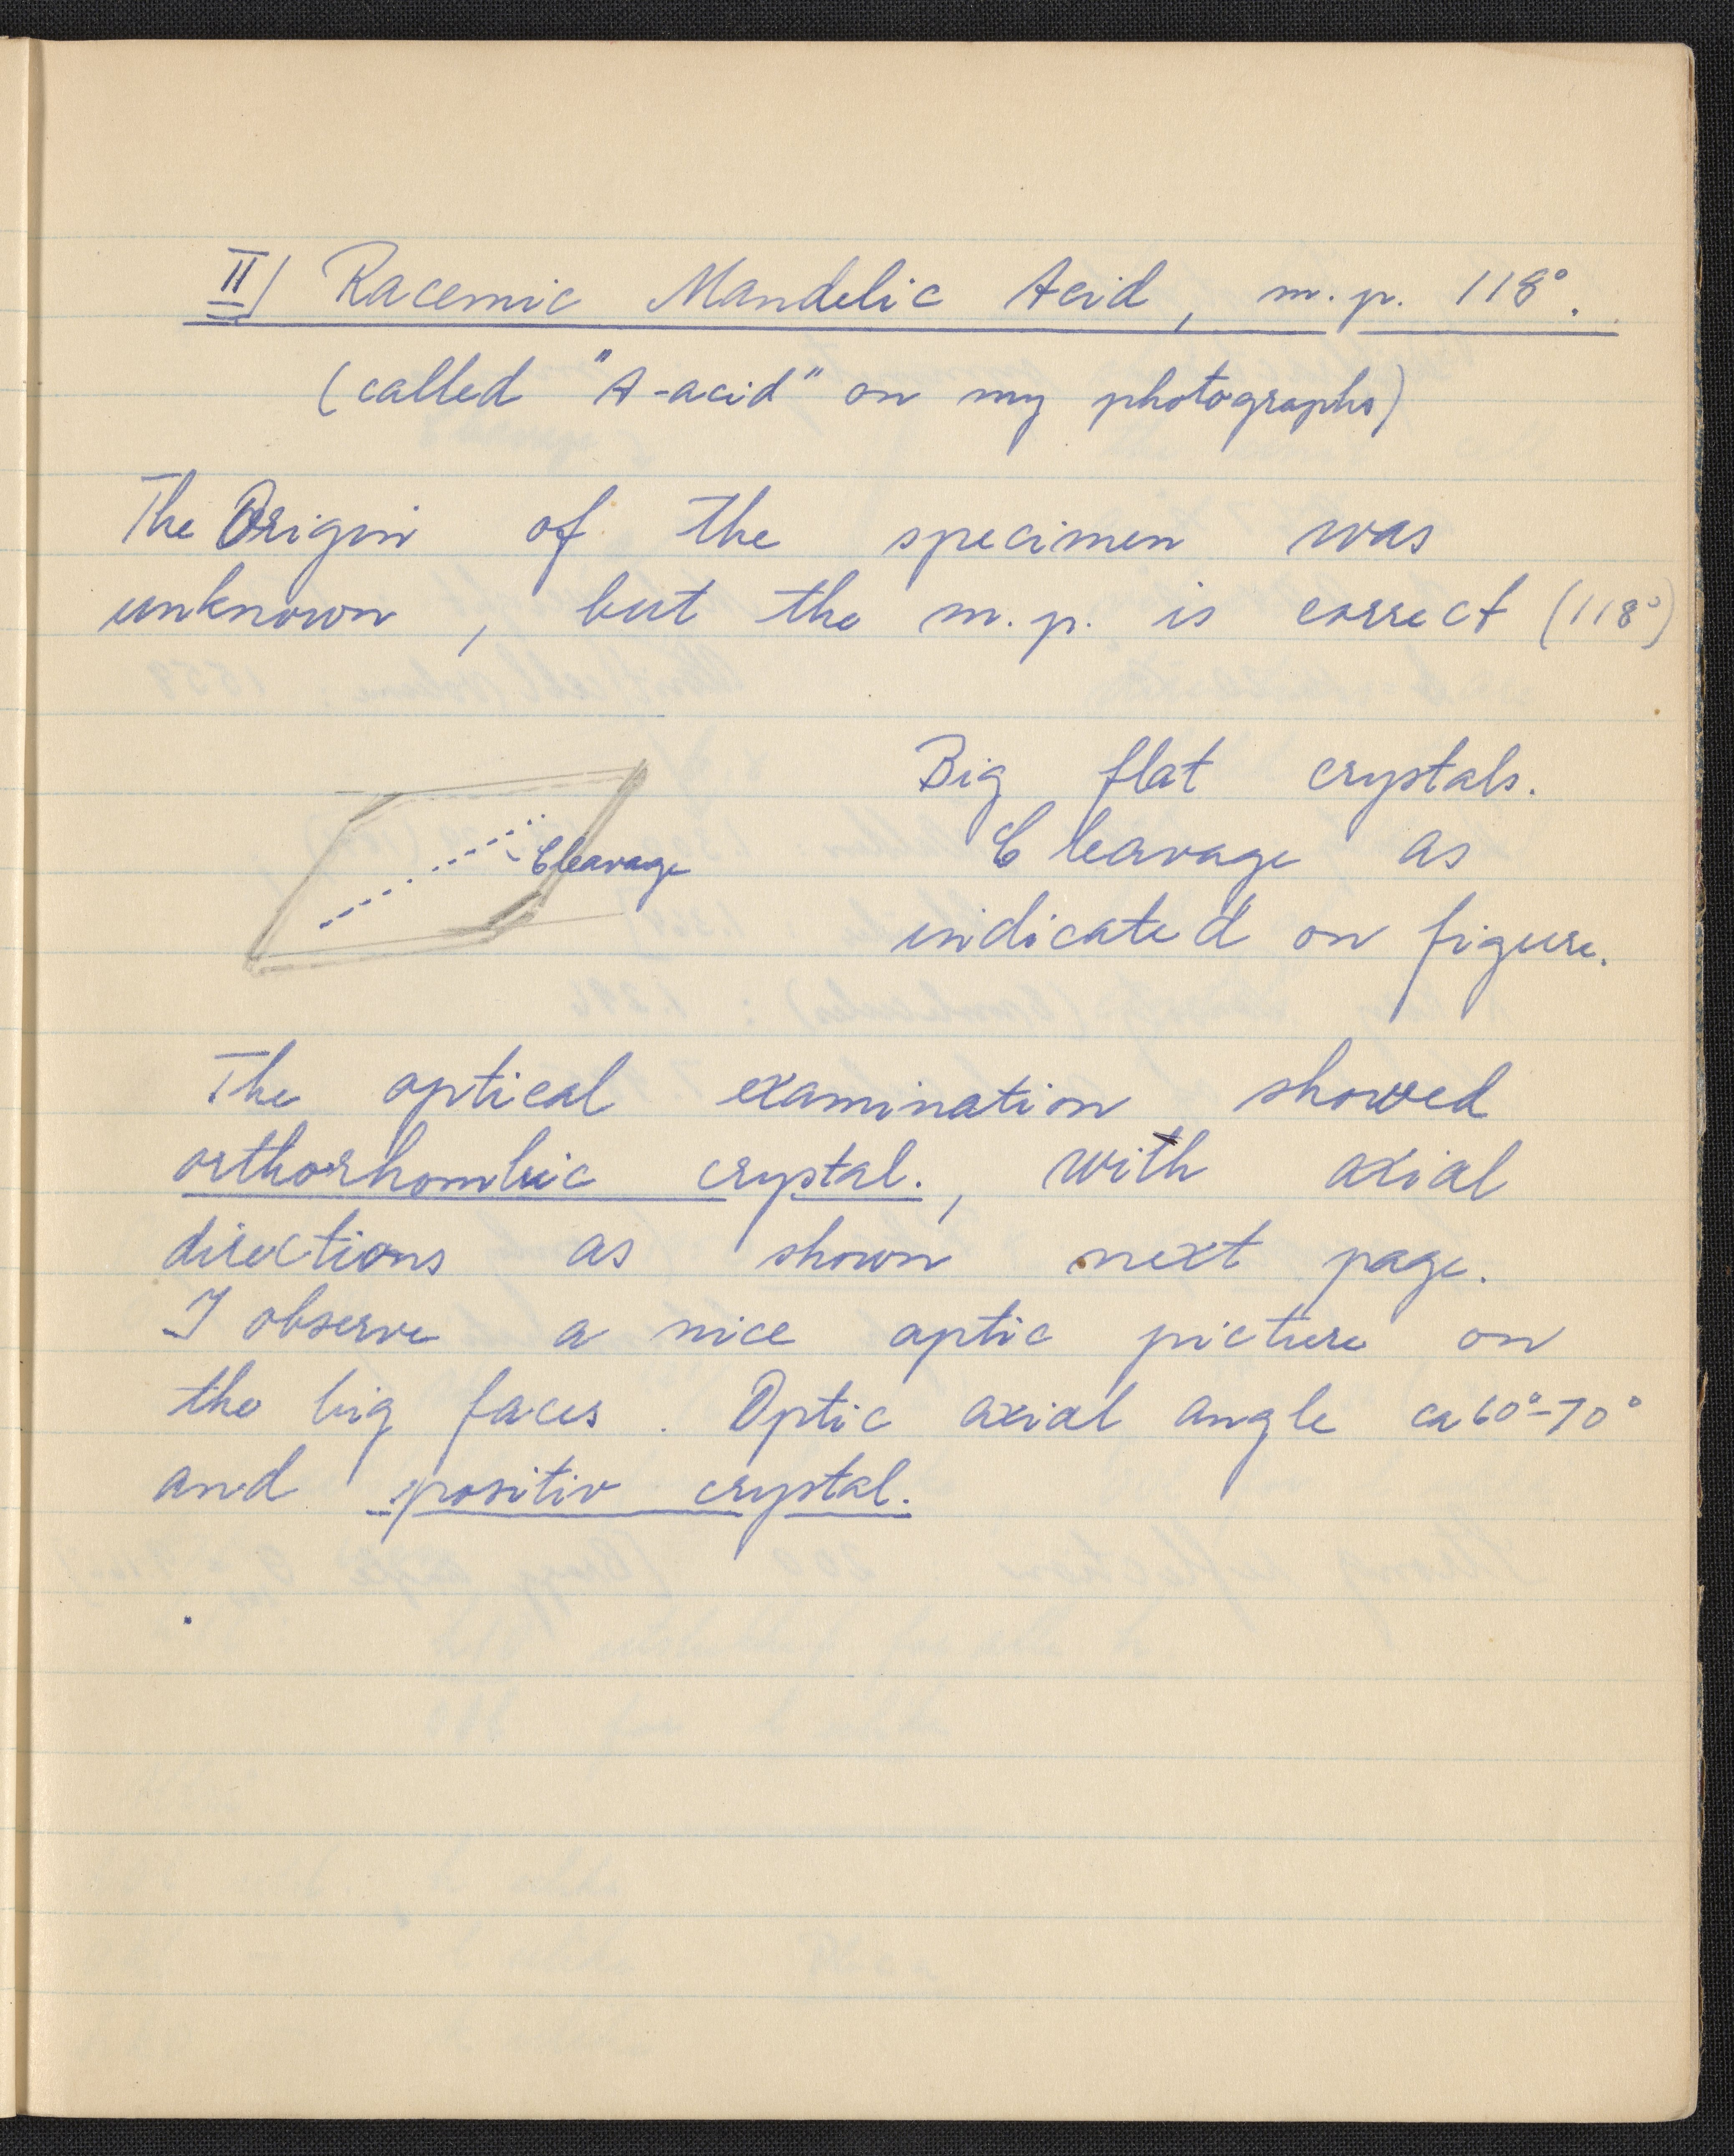 II) Racemic Mandelic Acid, m.p. 118°.
(called "A-acid" on my photographs)
The Origin of the specimen was
unknown, but the m.p. is correct (118°)
Big flat crystals.
Cleavage as
indicated on figure.
Cleavage
The optical examination showed
orthorhombic crystal., with axial
directions as shown next page.
I observe a nice optic picture on
the big faces. Optic axial angle ca 60°-70°
and positiv crystal.